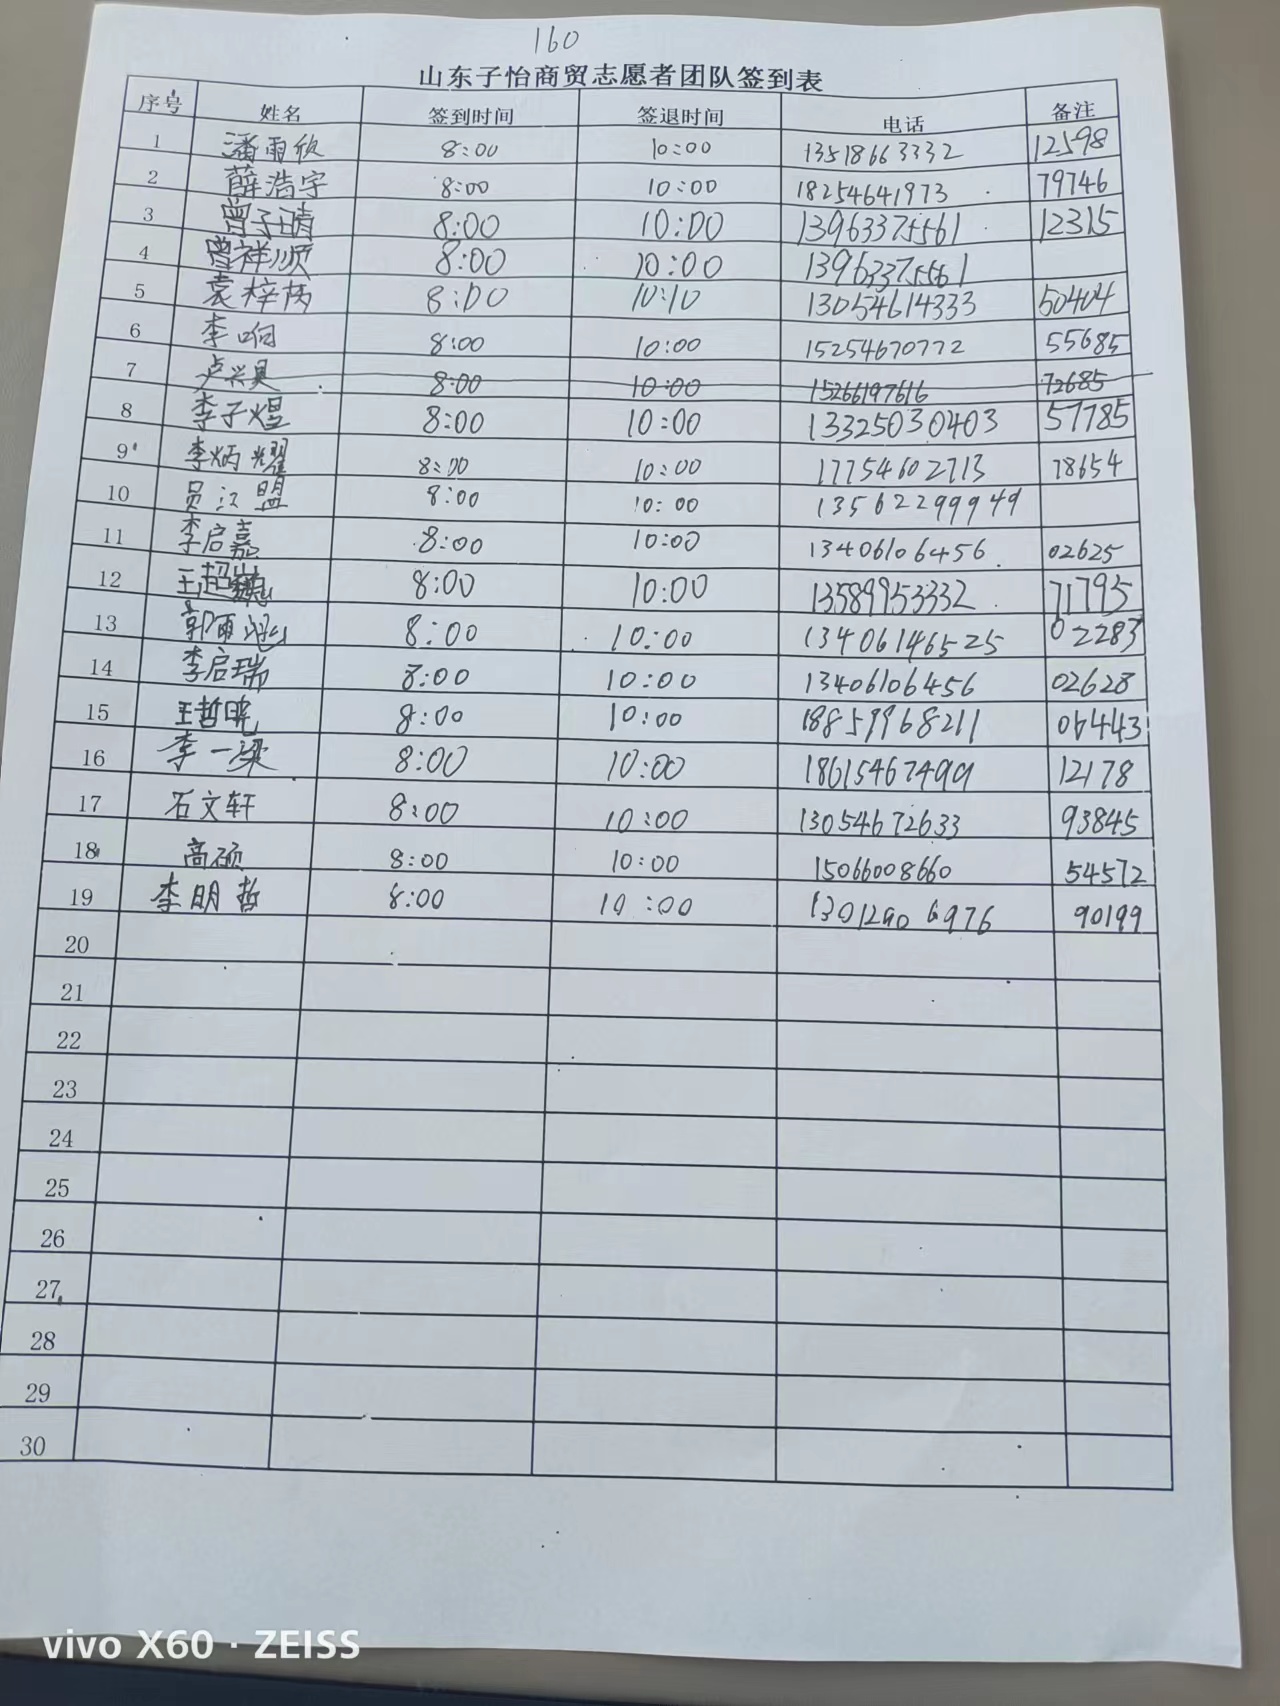 160
山东子怡商贸志愿者团队签到表
序号 姓名 签到时间 签退时间 电话 备注
1 潘雨欣 8:00 10:00 13518663332 12598
2 薛浩宇 8:00 10:00 18254641973 79746
3 曾子晴 8:00 10:00 13963375561 12315
4 曾祥顺 8:00 10:00 13963375561
5 袁梓芮 8:00 10:10 13054614333 50404
6 李响 8:00 10:00 15254670772 55685
7 卢兴昊 8:00 10:00 15266197616 72685
8 李子煜 8:00 10:00 13325030403 57785
9 李炳耀 8:00 10:00 17754602713 78654
10 员江盟 8:00 10:00 13562299949
11 李启嘉 8:00 10:00 13406106456 02625
12 王超 8:00 10:00 13589953332 71795
13 郭雨 8:00 10:00 13406146525 02283
14 李启瑞 8:00 10:00 13406106456 02628
15 王哲 8:00 10:00 18859968211 443
16 李一梁 8:00 10:00 18615467499 12178
17 石文轩 8:00 10:00 13054672633 93845
18 高硕 8:00 10:00 15066008660 54572
19 李明哲 8:00 10:00 13012906976 90199
20
21
22
23
24
25
26
27
28
29
30
vivo X60 · ZEISS